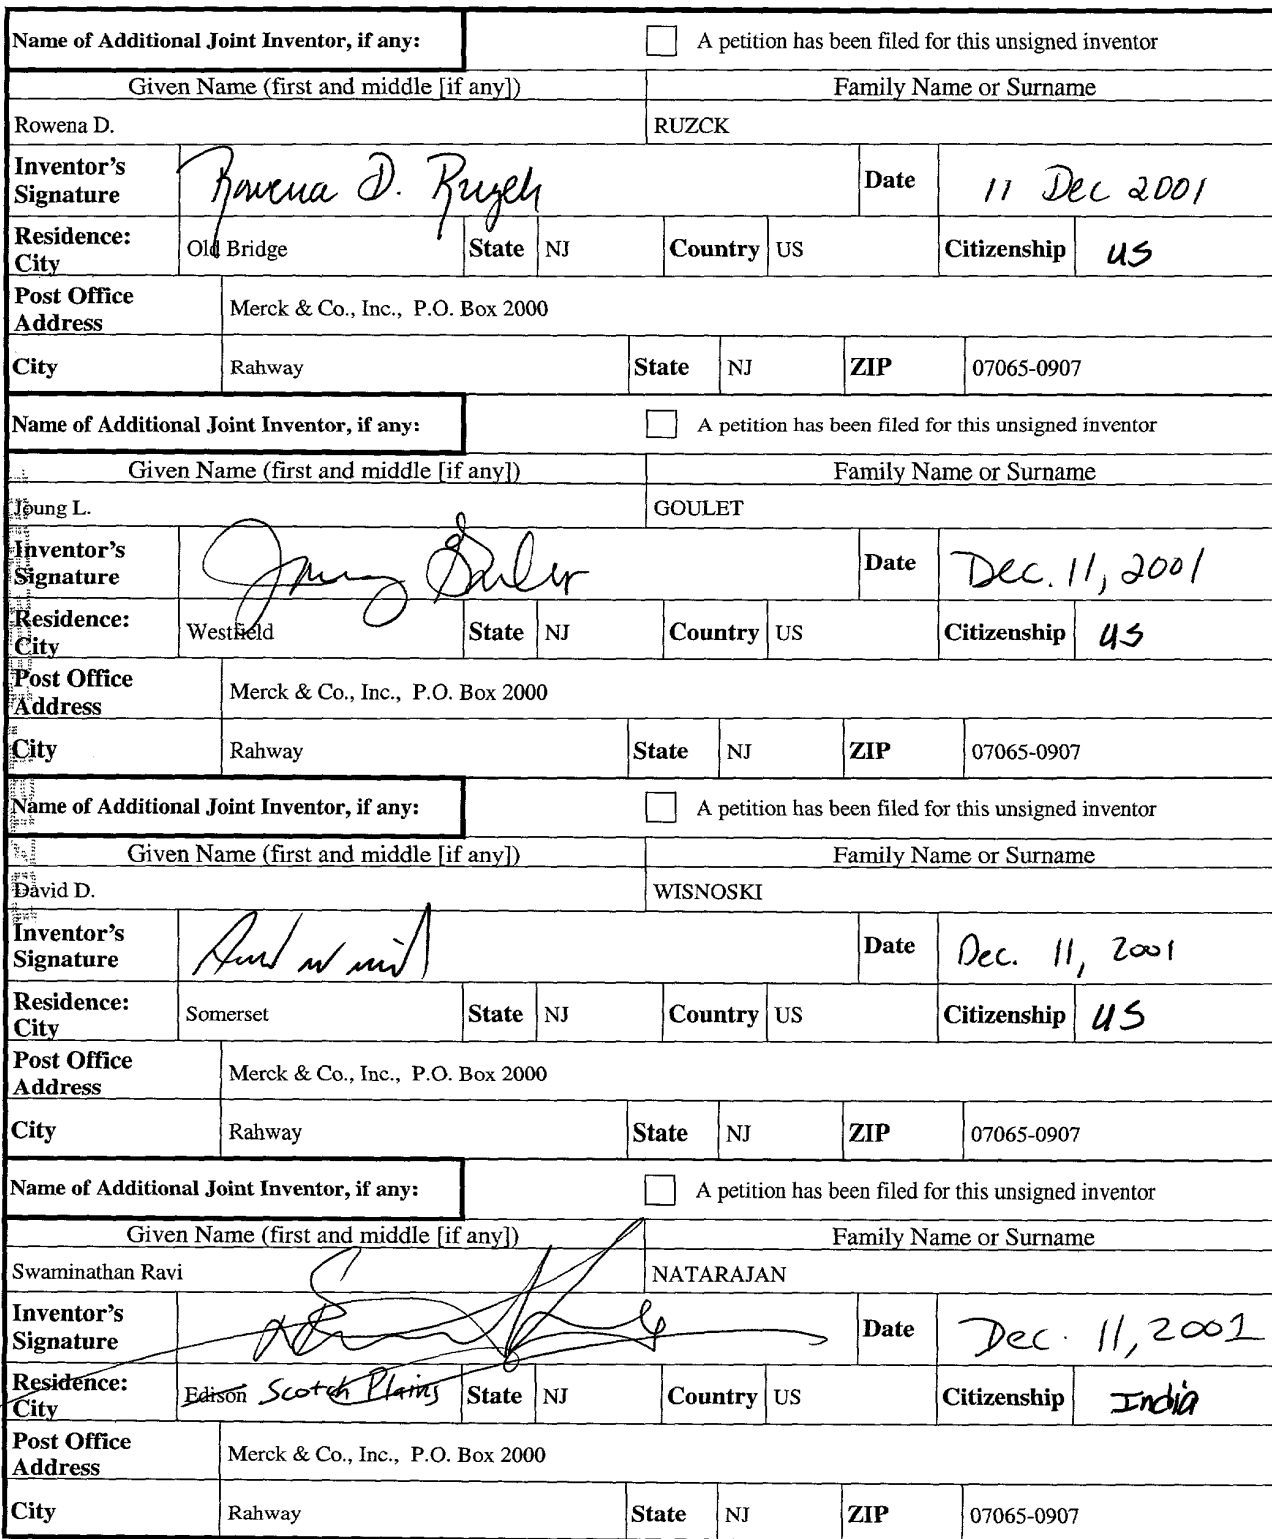 Name of Additional Joint Inventor, if any: A petition has been filed for this unsigned inventor
Given Name (first and middle [if any]) Family Name or Surname
Rowena D. RUZCK
Inventor's Signature Rowena D. Ruzck Date 11 Dec 2001
Residence: City Old Bridge State NJ Country US Citizenship US
Post Office Address Merck & Co., Inc., P.O. Box 2000
City Rahway State NJ ZIP 07065-0907
Name of Additional Joint Inventor, if any: A petition has been filed for this unsigned inventor
Given Name (first and middle [if any]) Family Name or Surname
Joung L. GOULET
Inventor's Signature Date Dec. 11, 2001
Residence: City Westfield State NJ Country US Citizenship US
Post Office Address Merck & Co., Inc., P.O. Box 2000
City Rahway State NJ ZIP 07065-0907
Name of Additional Joint Inventor, if any: A petition has been filed for this unsigned inventor
Given Name (first and middle [if any]) Family Name or Surname
David D. WISNOSKI
Inventor's Signature Date Dec. 11, 2001
Residence: City Somerset State NJ Country US Citizenship US
Post Office Address Merck & Co., Inc., P.O. Box 2000
City Rahway State NJ ZIP 07065-0907
Name of Additional Joint Inventor, if any: A petition has been filed for this unsigned inventor
Given Name (first and middle [if any]) Family Name or Surname
Swaminathan Ravi NATARAJAN
Inventor's Signature Date Dec. 11, 2001
Residence: City Edison Scotch Plains State NJ Country US Citizenship India
Post Office Address Merck & Co., Inc., P.O. Box 2000
City Rahway State NJ ZIP 07065-0907